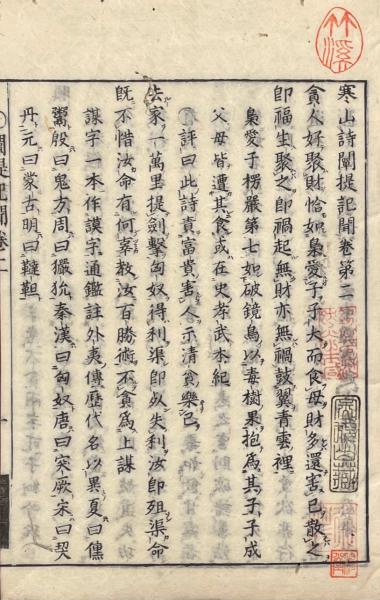 寒山詩闡提記聞卷第二
貪人好聚財恰如梟愛子子大而食母財多還害己散之
即福生聚之即禍起無財亦無禍鼓翼青雲裡
梟愛子楞嚴第七如破鏡鳥以毒樹果抱為其子子成
父母皆遭其食或在史孝武本紀
評曰此詩責富貴害人示清貧樂已
去家一萬里提劍擊匈奴得利渠即死失利汝即殂渠命
既不惜汝命有何辜教汝百勝術不貪為上謀
謀字一本作謨字通鑑註外夷傳歷代名以異夏曰獯
鬻殷曰鬼方周曰玁狁秦漢曰匈奴唐曰突厥宋曰契
丹元曰蒙古明曰韃靼
闡提記聞卷二
竹溪